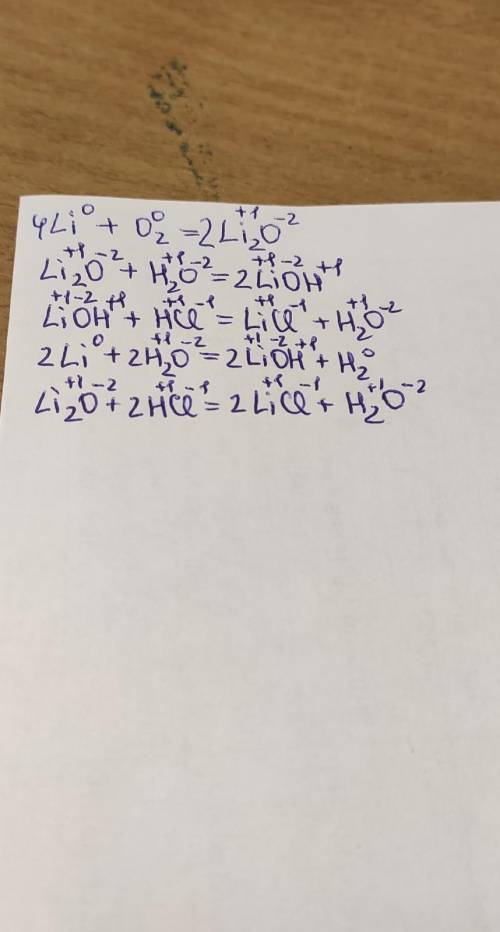 4Li⁰ + O₂⁰ = 2Li₂⁺¹O⁻²
Li₂⁺¹O⁻² + H₂⁺¹O⁻² = 2Li⁺¹O⁻²H⁺¹
Li⁺¹O⁻²H⁺¹ + H⁺¹Cl⁻¹ = Li⁺¹Cl⁻¹ + H₂⁺¹O⁻²
2Li⁰ + 2H₂⁺¹O⁻² = 2Li⁺¹O⁻²H⁺¹ + H₂⁰
Li₂⁺¹O⁻² + 2H⁺¹Cl⁻¹ = 2Li⁺¹Cl⁻¹ + H₂⁺¹O⁻²